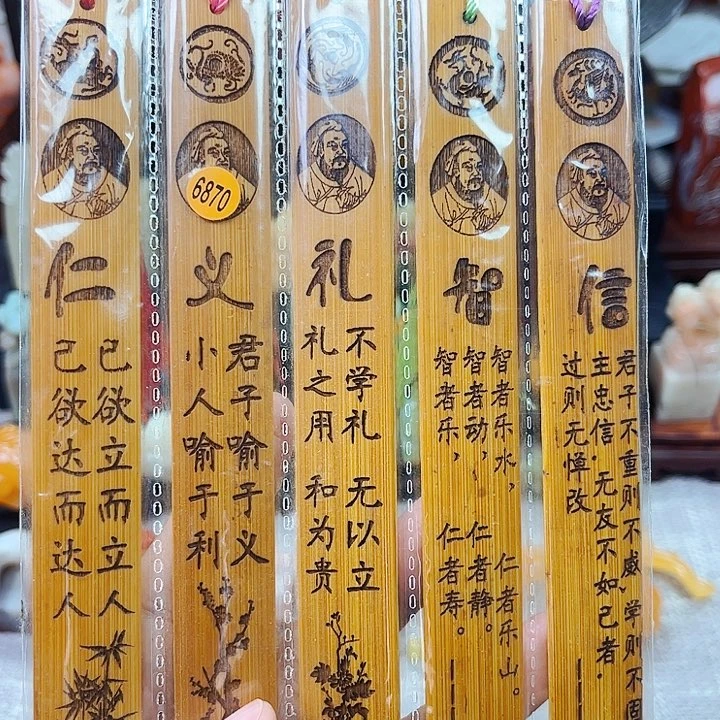 仁
已欲立而立人
己欲达而达人
6870
义
君子喻于义
小人喻于利
礼
不学礼 无以立
礼之用 和为贵
智
智者乐水， 仁者乐山。
智者动， 仁者静。
智者乐， 仁者寿。
信
君子不重则不威、学则不固
主忠信．无友不如己者．
过则无惮改